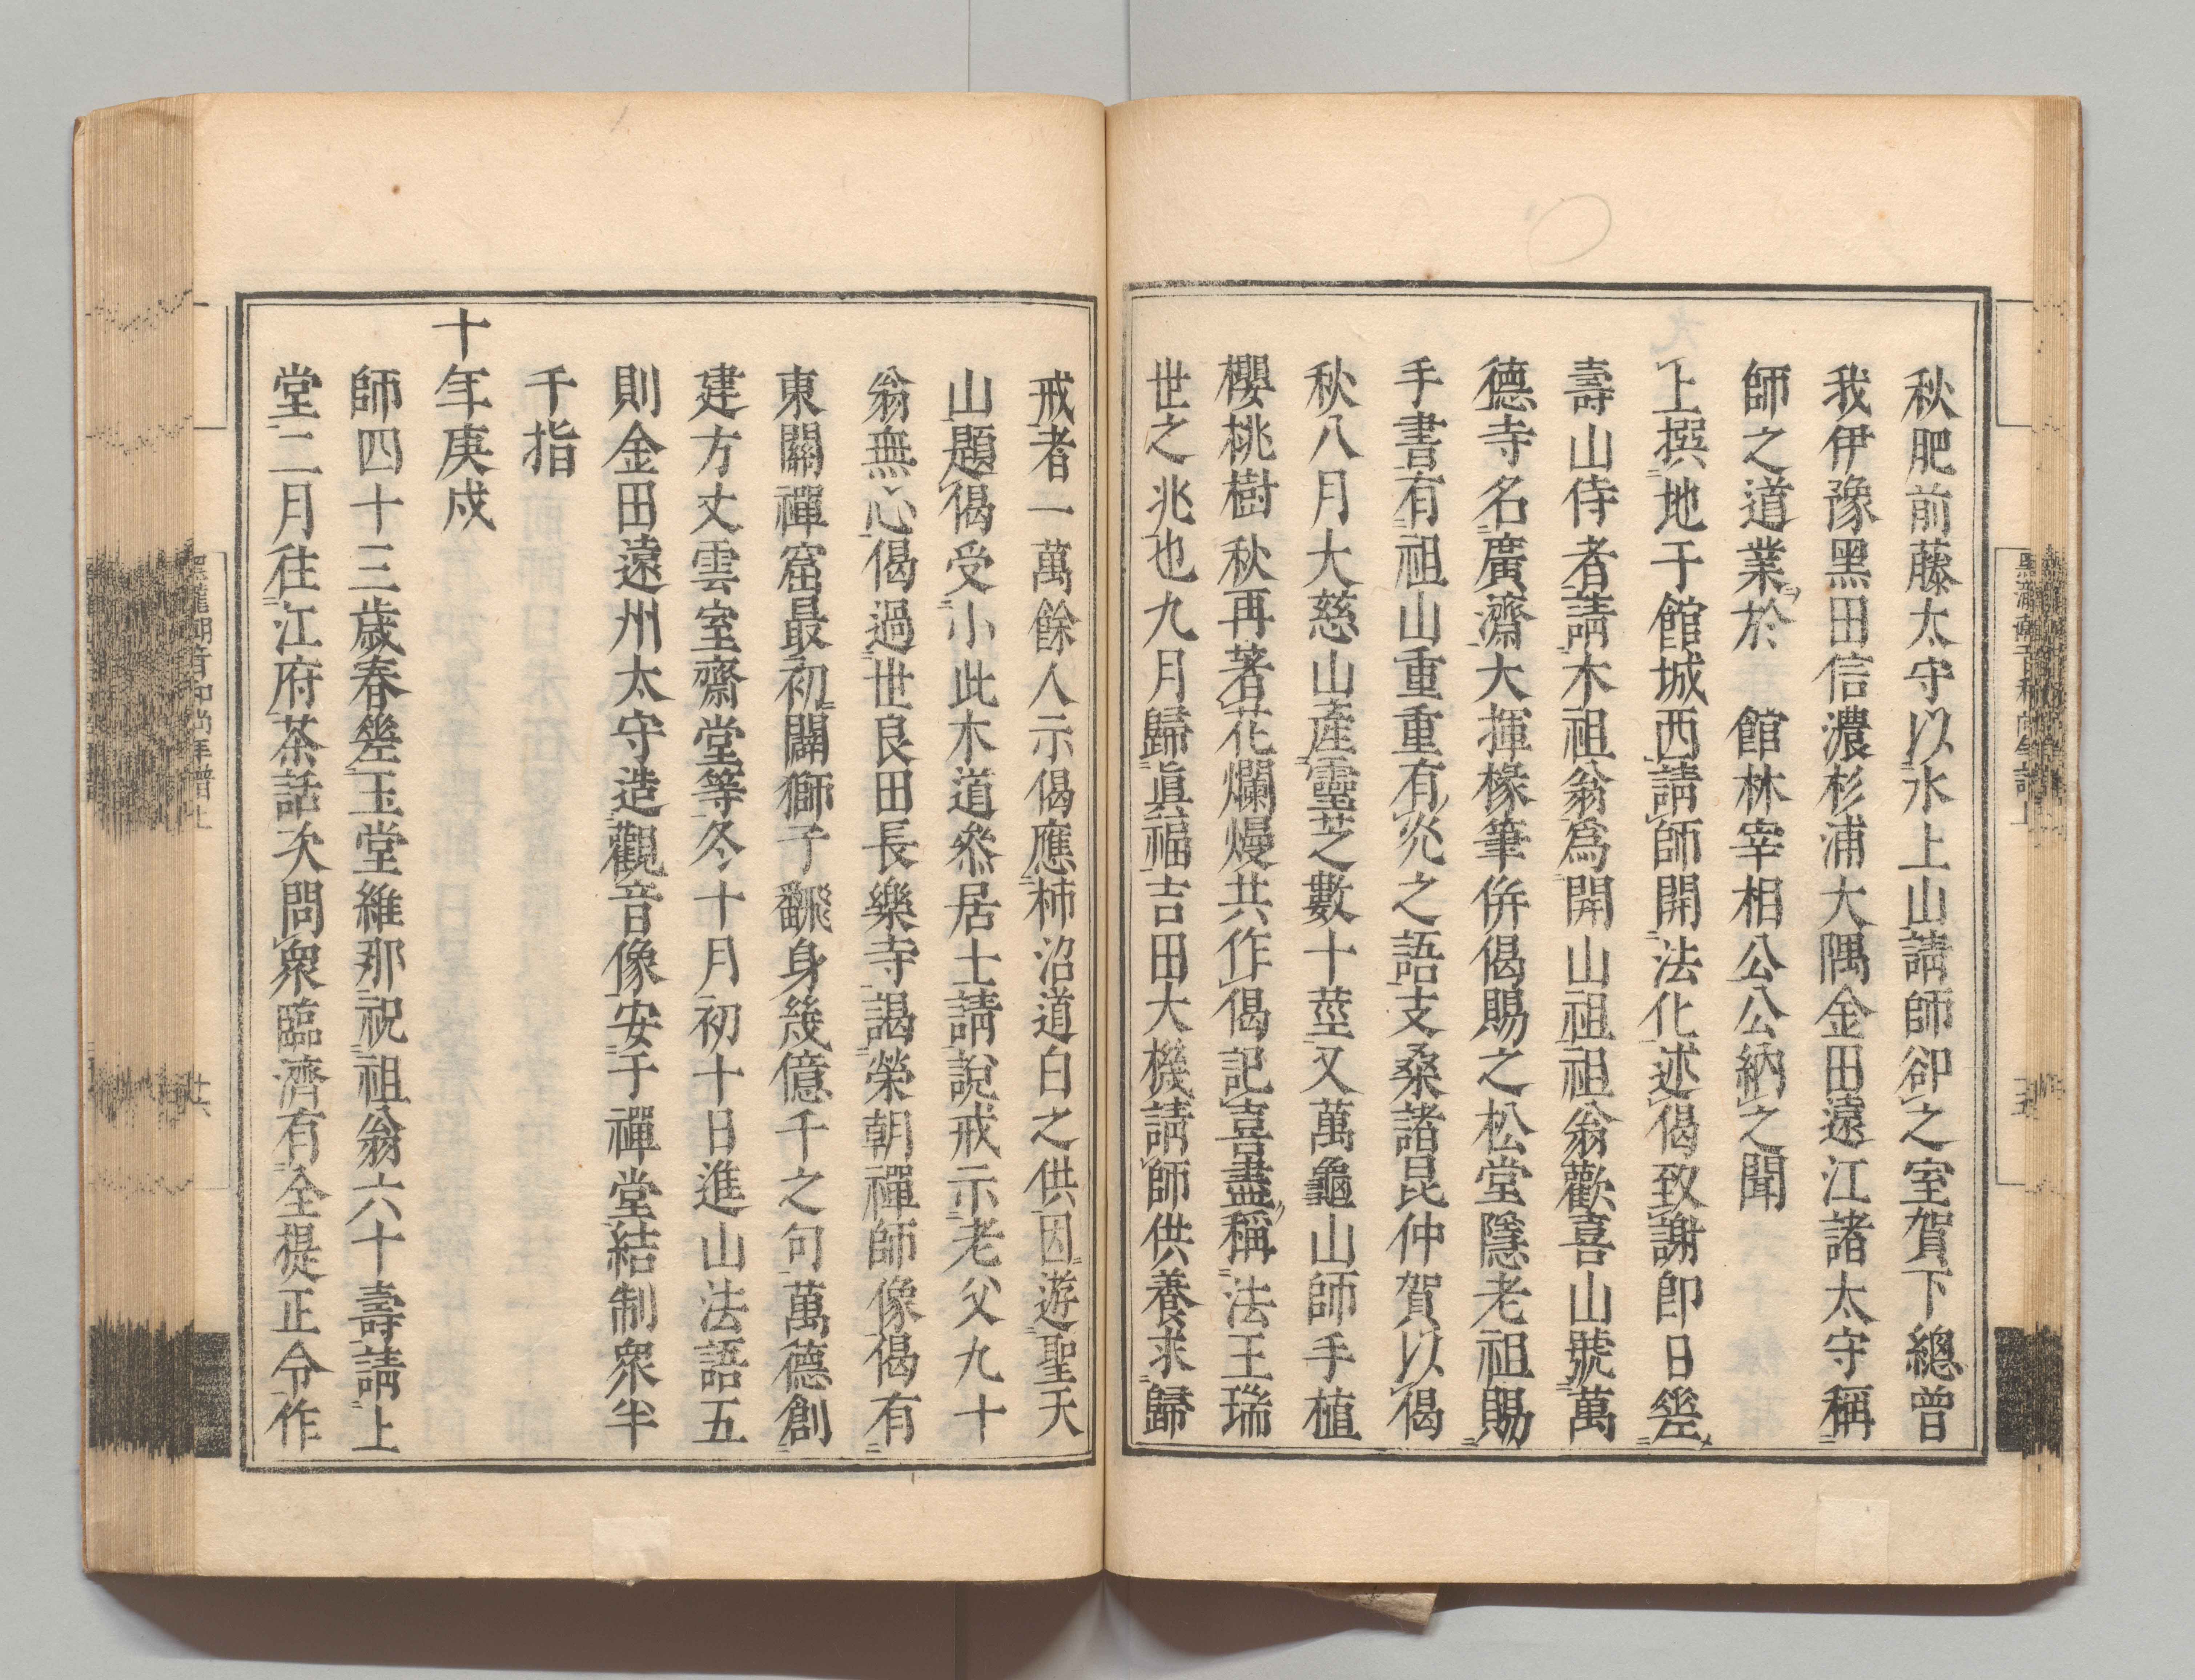 秋肥前藤太守以水上山請師卻之室賀下總曾
我伊豫黑田信濃杉浦大隅金田遠江諸太守稱
師之道業於　館林宰相公公納之聞
上撰地于館城西請師開法化述偈致謝即日㘴
壽山侍者請木祖翁爲開山祖祖翁歡喜山號萬
德寺名廣濟大揮椽筆併偈賜之松堂隱老祖賜
手書有祖山重重有兆之語支桑諸昆仲賀以偈
秋八月大慈山產靈芝數十莖又萬龜山師手植
櫻桃樹秋再著花爛熳共作偈記喜盡稱法王瑞
世之兆也九月歸眞福吉田大機請師供養求歸
戒者一萬餘人示偈應柿沼道白之供因遊聖天
山題偈受小此木道叅居士請說戒示老父九十
翁無心偈過世良田長樂寺謁榮朝禪師像偈有
東關禪窟最初闢獅子飜身幾億千之句萬德創
建方丈雲室齋堂等冬十月初十日進山法語五
則金田遠州太守造觀音像安于禪堂結制衆半
千指
十年庚戌
師四十三歲春㘴玉堂維那祝祖翁六十壽請上
堂二月往江府茶話次問衆臨濟有全提正令作